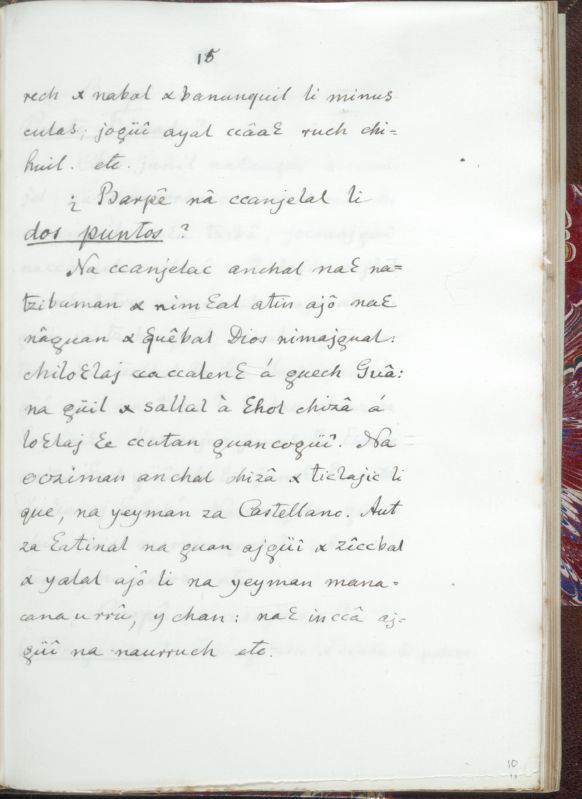 15
rech x nabal x banunquil li minus
culas; jogüî ayal ccâaƐ ruch chi=
huil. etc.
¿ Barpê nâ ccanjelal li
dos puntos ?
Na ccanjelac anchal naƐ na=
tzibuman x nimƐal atin ajô naƐ
nâguan x Ɛuêbal Dios nimajgual:
chiloƐlaj caccalenƐ á guech Guâ:
na güil x sallal à Ɛhol chizâ á
loƐlaj Ɛe ccutan guancogüî. Na
oziman anchal chizâ x ticlajic li
que, na yeyman za Castellano. Aut
za Ɛatinal na guan ajgüî x zîccbal
x yalal ajô li na yeyman mana=
cana urrû, y chan: naƐ inccâ aj=
güî na naurruch etc.
10